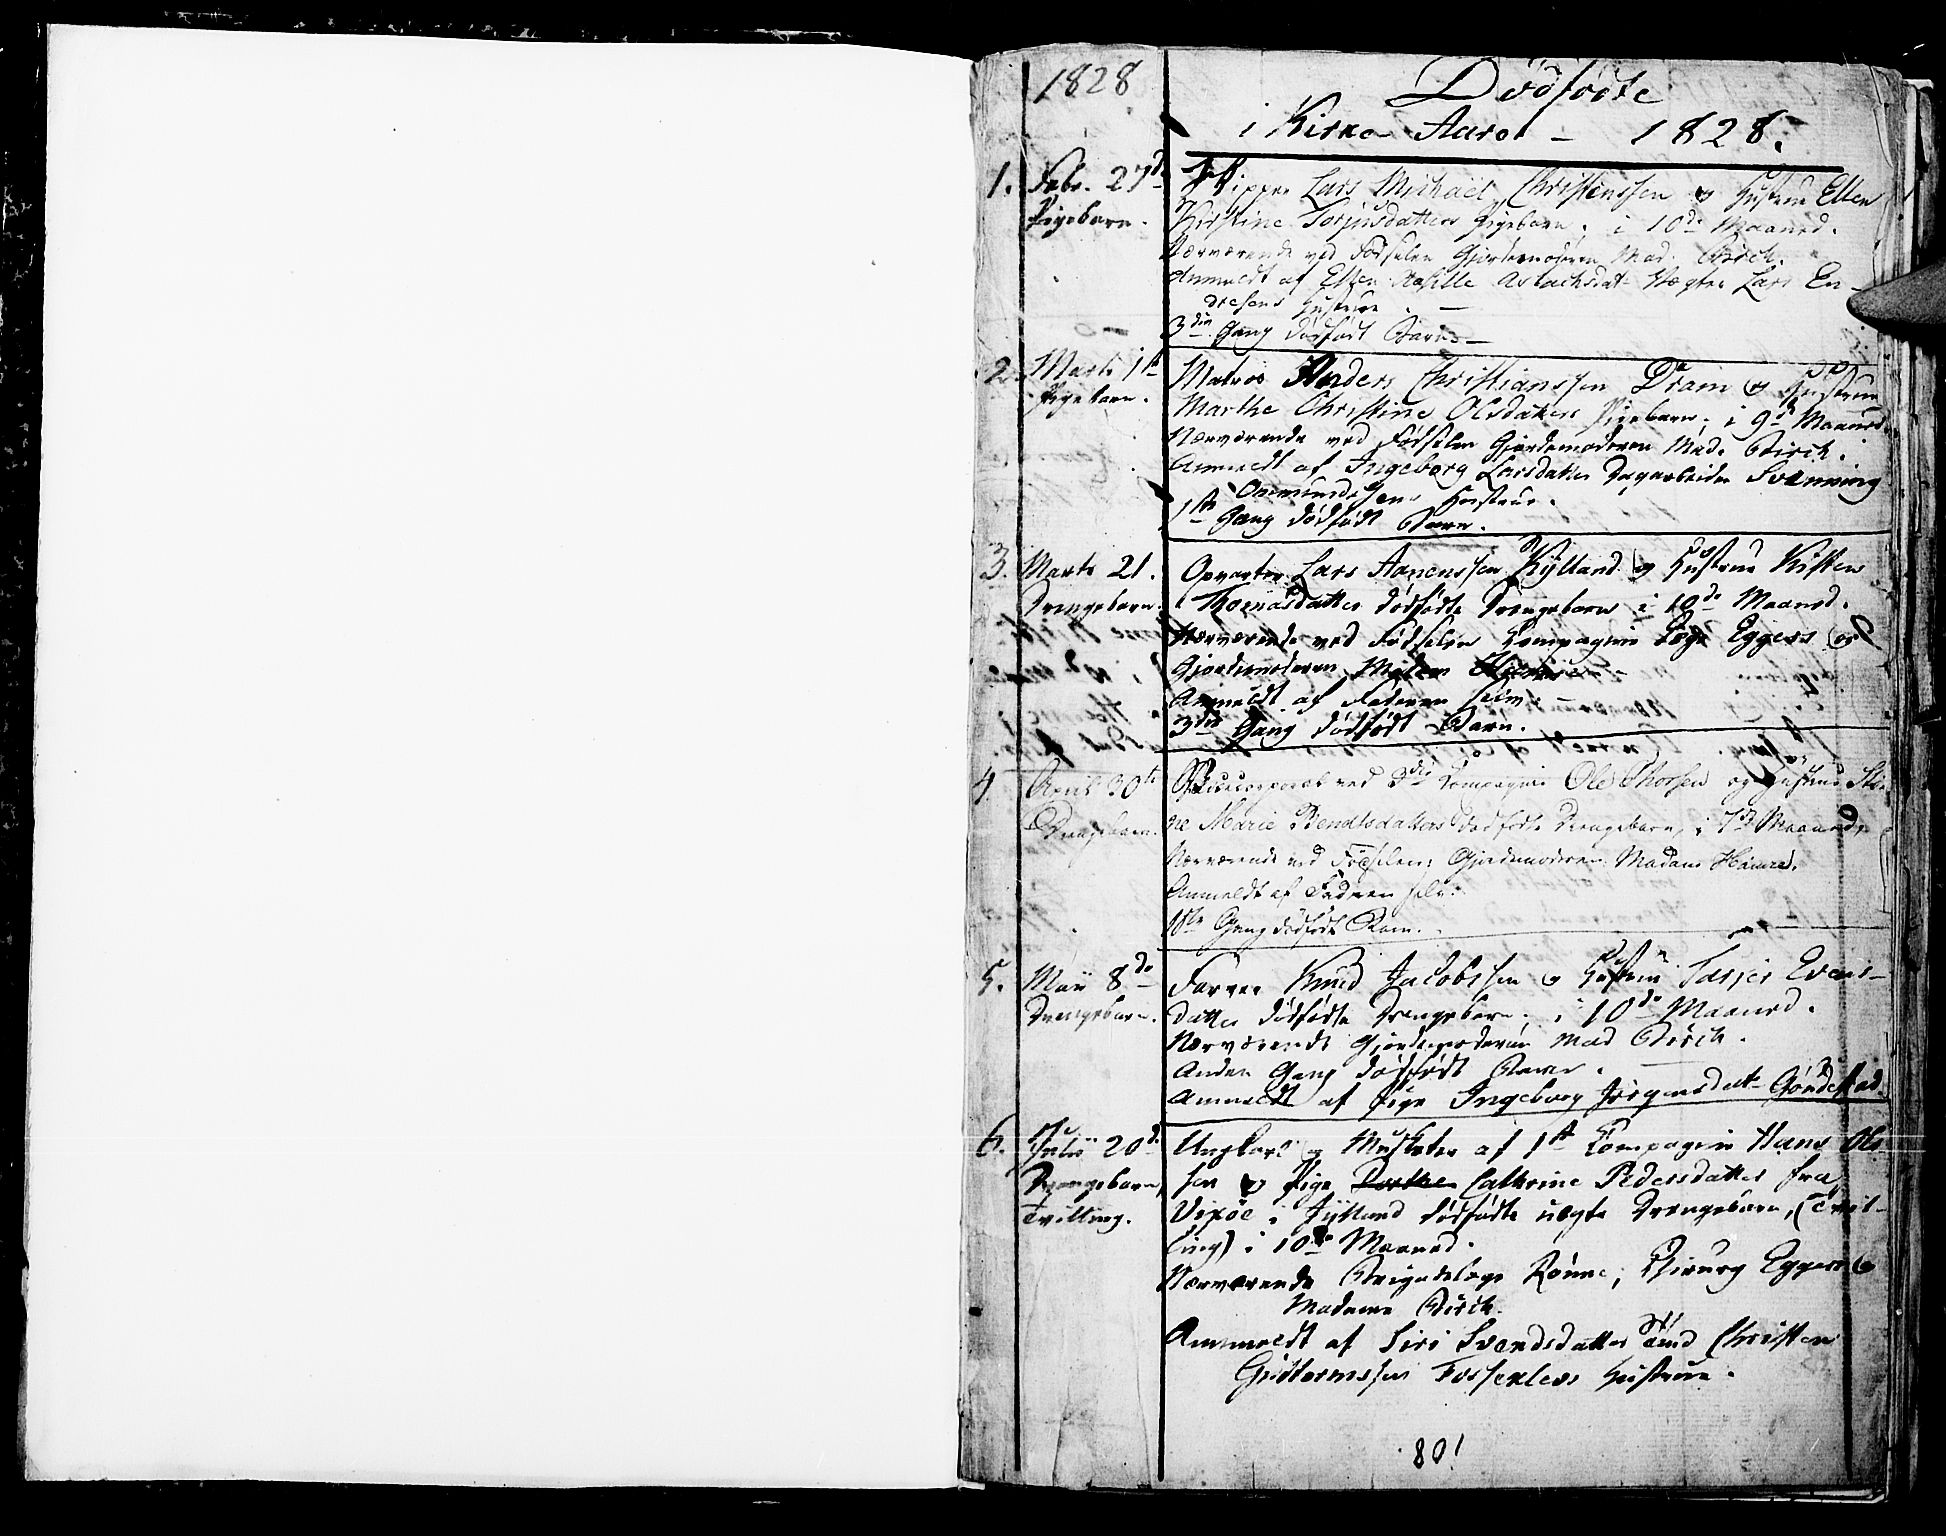 1828
Dødfødte
i Kirke-Aaret - 1828.
1. Febr. 27d
Pigebarn.
Skipper Lars Michael Christenssen og Hustrue Ellen
Kirstine Torjusdatters Pigebarn, i 10de Maaned.
Nærværende ved Fødselen Gjordemoderen Mad. Birch.
Anmeldt af Ellen Aslachsdat- Vægter Lars En-
dresens Hustrue. -
3die Gang dødfødt Barn. -
2. Marts 1ste
Pigebarn.
Matros Anders Christianssen Dram og Hustrue
Marthe Christine Olsdatters Pigebarn, i 9de Maaned.
Nærværende ved Fødselen Gjordemoderen Mad. Birch.
Anmeldt af Ingeborg Larsdatter Dagarbeider Svenning
Ommundsens Hustrue.
1ste Gang dødfødt Barn.
3. Marts 21.
Drengebarn.
Opvarter Lars Aanenssen Kylland og Hustrue Kisten
Thomasdatters dødfødte Drengebarn i 10de Maaned.
Nærværende ved Fødselen Compagnie Læge Eggers og
Gjordemoderen Madam
Anmeldt af Faderen selv. -
3die Gang dødfødt Barn.
4. April 30te
Drengebarn.
ved 3die Compagnie Ole Thorsen og Hustrue Sti-
ne Marie Bendtsdatters dødfødte Drengebarn, i 7de Maaned,
Nærværende ved Fødselen: Gjordemoderen Madam Hamre.
Anmeldt af Faderen selv.
1ste Gang dødfødt Barn.
5. Maii 8de
Drengebarn.
Farver Knud Jacobssen og Hustrue Tarjer Evens-
datters dødfødte Drengebarn, i 10de Maaned.
Nærværende Gjordemoderen Mad Birch.
Anden Gang dødfødt Barn. -
Anmeldt af Pige Ingeborg Jörgensdat- Gondestad.
6. Julii 20de
Drengebarn,
Tvilling.
Ungkarl og Musketer af 1ste Compagnie Hans Ols-
sen og Pige Dorthe Cathrine Pedersdatter fra
i Jylland dødfødte uægte Drengebarn, (Tvil-
ling) i 10de Maaned.
Nærværende Brigadelæge Rönne, Chirurg Eggers og
Madame Birch.
Anmeldt af Siri Svendsdatter Christen
Guttormssen Fosseklevs Hustrue.
801